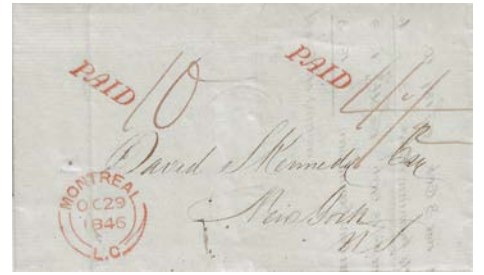 PAID 10
PAID
David S Kennedy Esq
New York
N.Y.
MONTREAL
OC 29
1846
L.C.